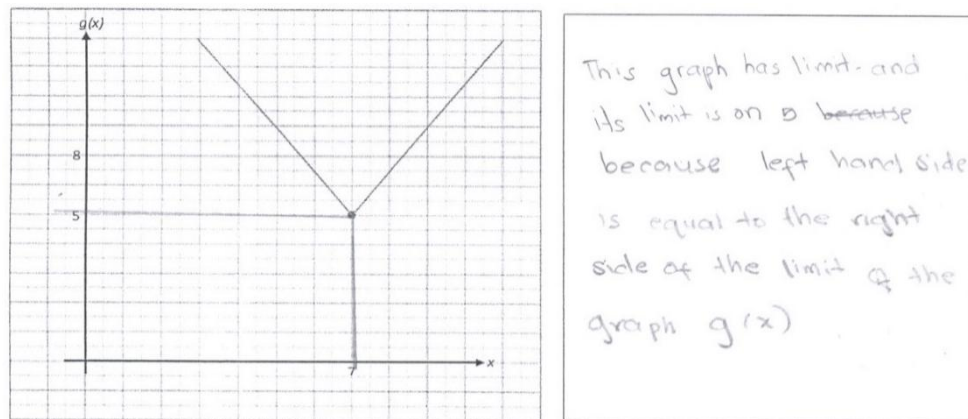 g(x)
8
5
7
x
This graph has limit. and
its limit is on 5 because
because left hand side
is equal to the right
side of the limit of the
graph g(x)